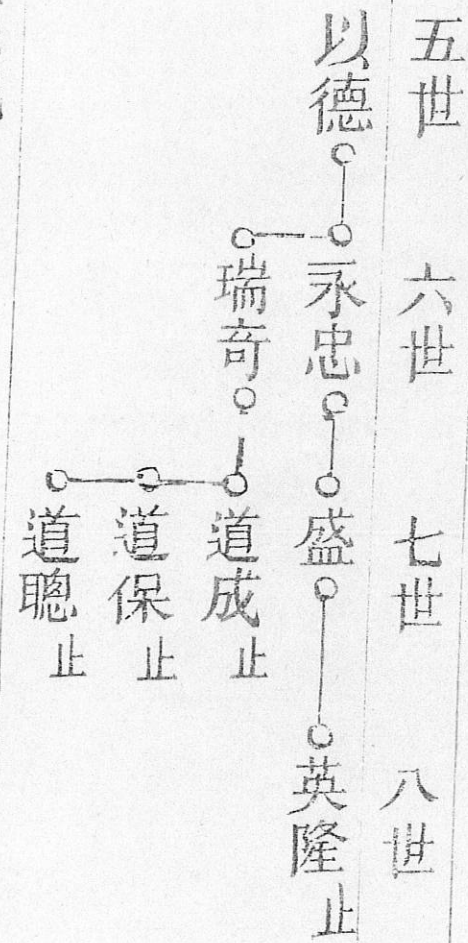 五世
六世
七世
八世
以德
永忠
盛
英隆 止
瑞奇
道成 止
道保 止
道聰 止